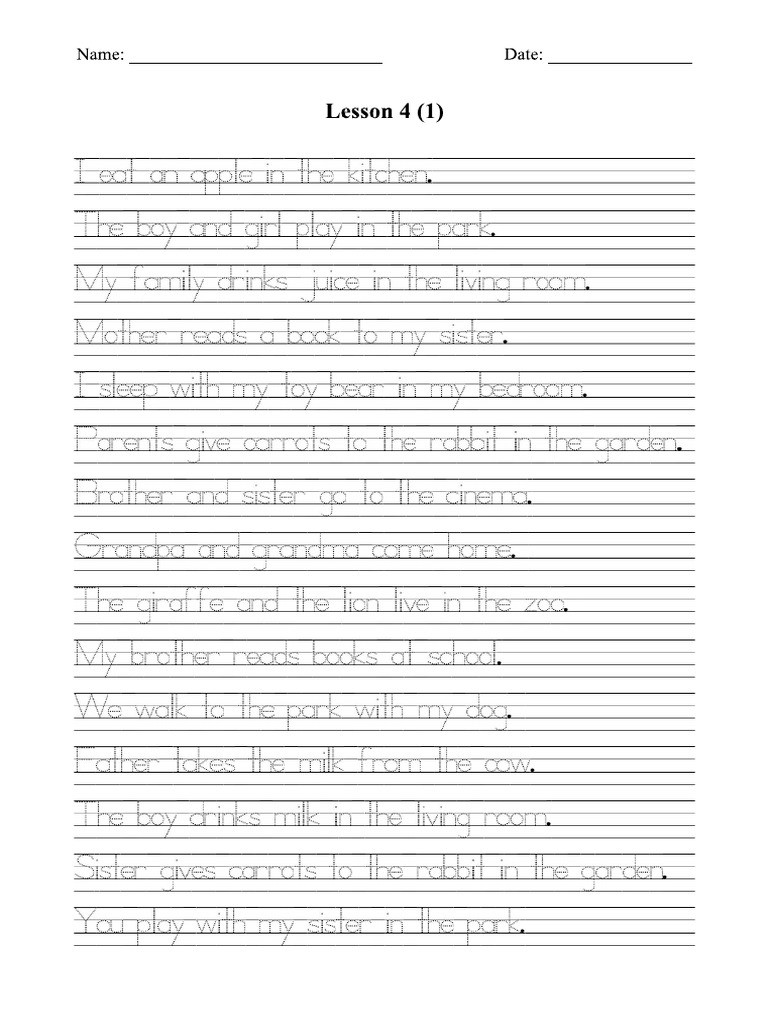 Name: Date:
Lesson 4 (1)
I eat an apple in the kitchen.
The boy and girl play in the park.
My family drinks juice in the living room.
Mother reads a book to my sister.
I sleep with my toy bear in my bedroom.
Parents give carrots to the rabbit in the garden.
Brother and sister go to the cinema.
Grandpa and grandma come home.
The giraffe and the lion live in the zoo.
My brother reads books at school.
We walk to the park with my dog.
Father takes the milk from the cow.
The boy drinks milk in the living room.
Sister gives carrots to the rabbit in the garden.
You play with my sister in the park.